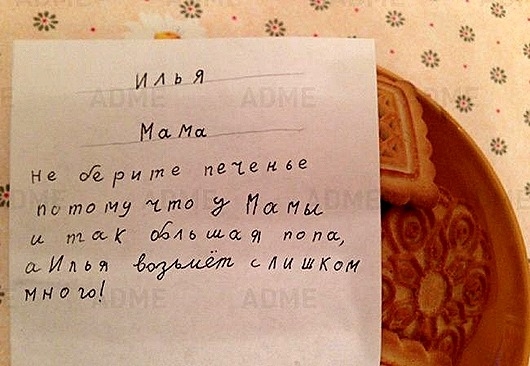 Илья
Мама
не берите печенье
потому что у Мамы
и так большая попа,
а Илья возьмёт слишком
много!
ADME
ADME
ADME
ADME
ADME
ADME
ADME